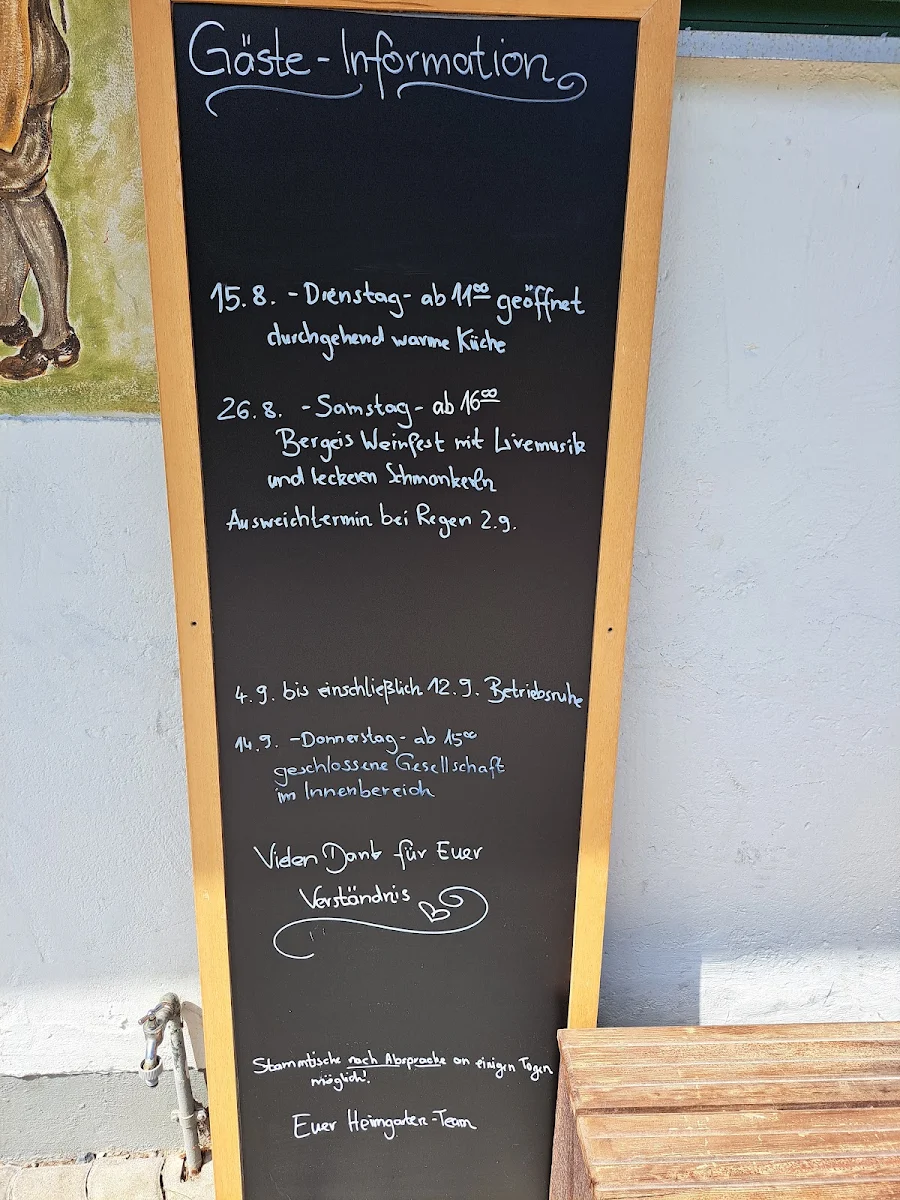 Gäste-Information
15.8. -Dienstag- ab 11⁰⁰ geöffnet
durchgehend warme Küche
26.8. -Samstag- ab 16⁰⁰
Bergeis Weinfest mit Livemusik
und leckeren Schmankerln
Ausweichtermin bei Regen 2.9.
4.9. bis einschließlich 12.9. Betriebsruhe
14.9. -Donnerstag- ab 15⁰⁰
geschlossene Gesellschaft
im Innenbereich
Vielen Dank für Euer
Verständnis
Stammtische nach Absprache an einigen Tagen
möglich!
Euer Heimgarten-Team